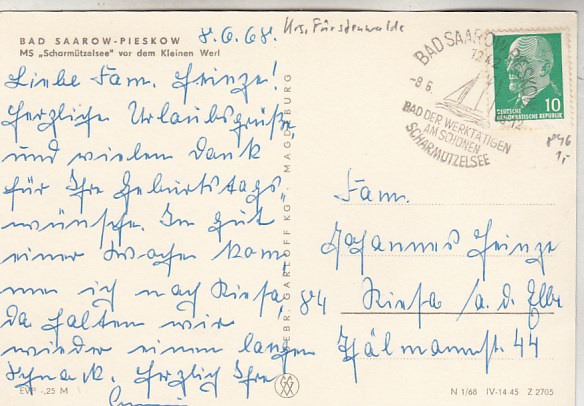 8.6.68.
Krs. Fürstenwalde
BAD SAAROW-PIESKOW
MS „Scharmützelsee" vor dem Kleinen Werl
Liebe Fam. Heinze!
Herzliche Urlaubsgrüße,
und vielen Dank
für Ihre Geburtstags
wünsche. In gut
einer Woche kom
me ich nach Riesa,
da halten wir
wieder einen langen
Schnack. Herzlich Ihre
EVP -,25 M
GEBR. GARLOFF KG · MAGDEBURG
BAD SAAROW-PIESKOW
1242
-8.6.
BAD DER WERKTÄTIGEN
AM SCHÖNEN
SCHARMÜTZELSEE
10
DEUTSCHE
DEMOKRATISCHE REPUBLIK
846
1,-
Fam.
Johannes Heinze
84 Riesa a. d. Elbe
Hjälmannstr. 44
N 1/68 IV-14-45 Z 2705